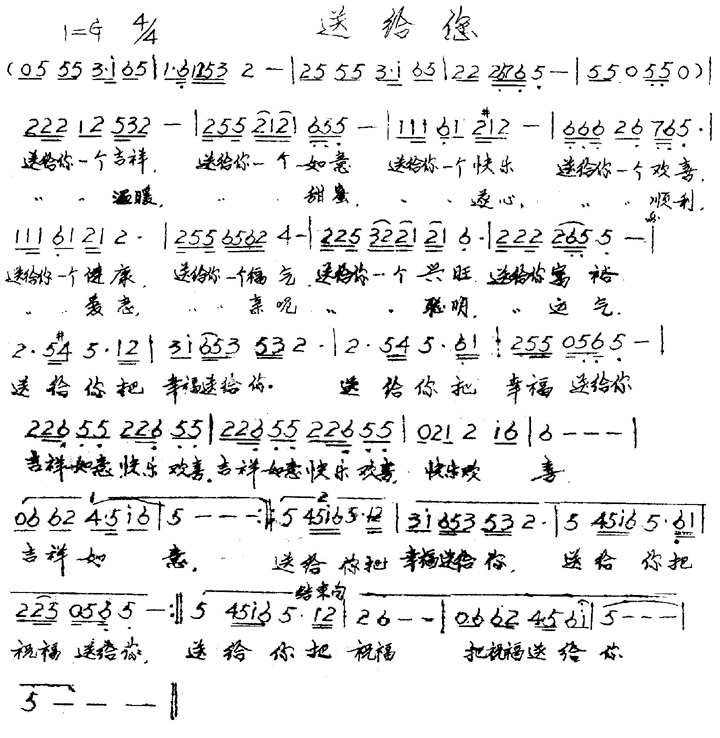 1=G 4/4 送给您
(05 55 3·i 65|1·6 1253 2 -|25 55 3·i 65|22 2765 5 -|55 0 55 0)|
222 12 532 -|255 2121 655 -|111 61 212 -|666 26 765·|
送给你一个吉祥, 送给你一个如意 送给你一个快乐 送给你一个欢喜,
〃 〃 温暖, 〃 甜蜜, 〃 〃 遂心, 〃 〃 顺利,
111 61 21 2·|255 6562 4 -|225 3221 21 6·|222 265 5 -|
送给你一个健康, 送给你一个福气, 送给你一个兴旺, 送给你富裕
〃 〃 友恋, 〃 〃 亲昵 〃 〃 聪明, 〃 运气.
2·#54 5·12|3i 653 53 2·|2·54 5·61|255 0565 -|
送给你把 幸福送给你. 送给你把 幸福 送给你
226 55 226 55|226 55 226 55|021 2 i6|6 - - -|
吉祥如意快乐欢喜,吉祥如意快乐欢喜, 快乐欢 喜
1 2
06 62 4·5 i6|5 - - -:‖5 45i65·12|3i653 53 2·|5 45i6 5·61|
吉祥如 意. 送给你把 幸福送给你, 送给你把
结束句
223 0565 -:‖5 45i6 5·12|26 - -|0662 4·56i|5 - - -|
祝福 送给你, 送给你把 祝福 把祝福送给你
5 - - -‖